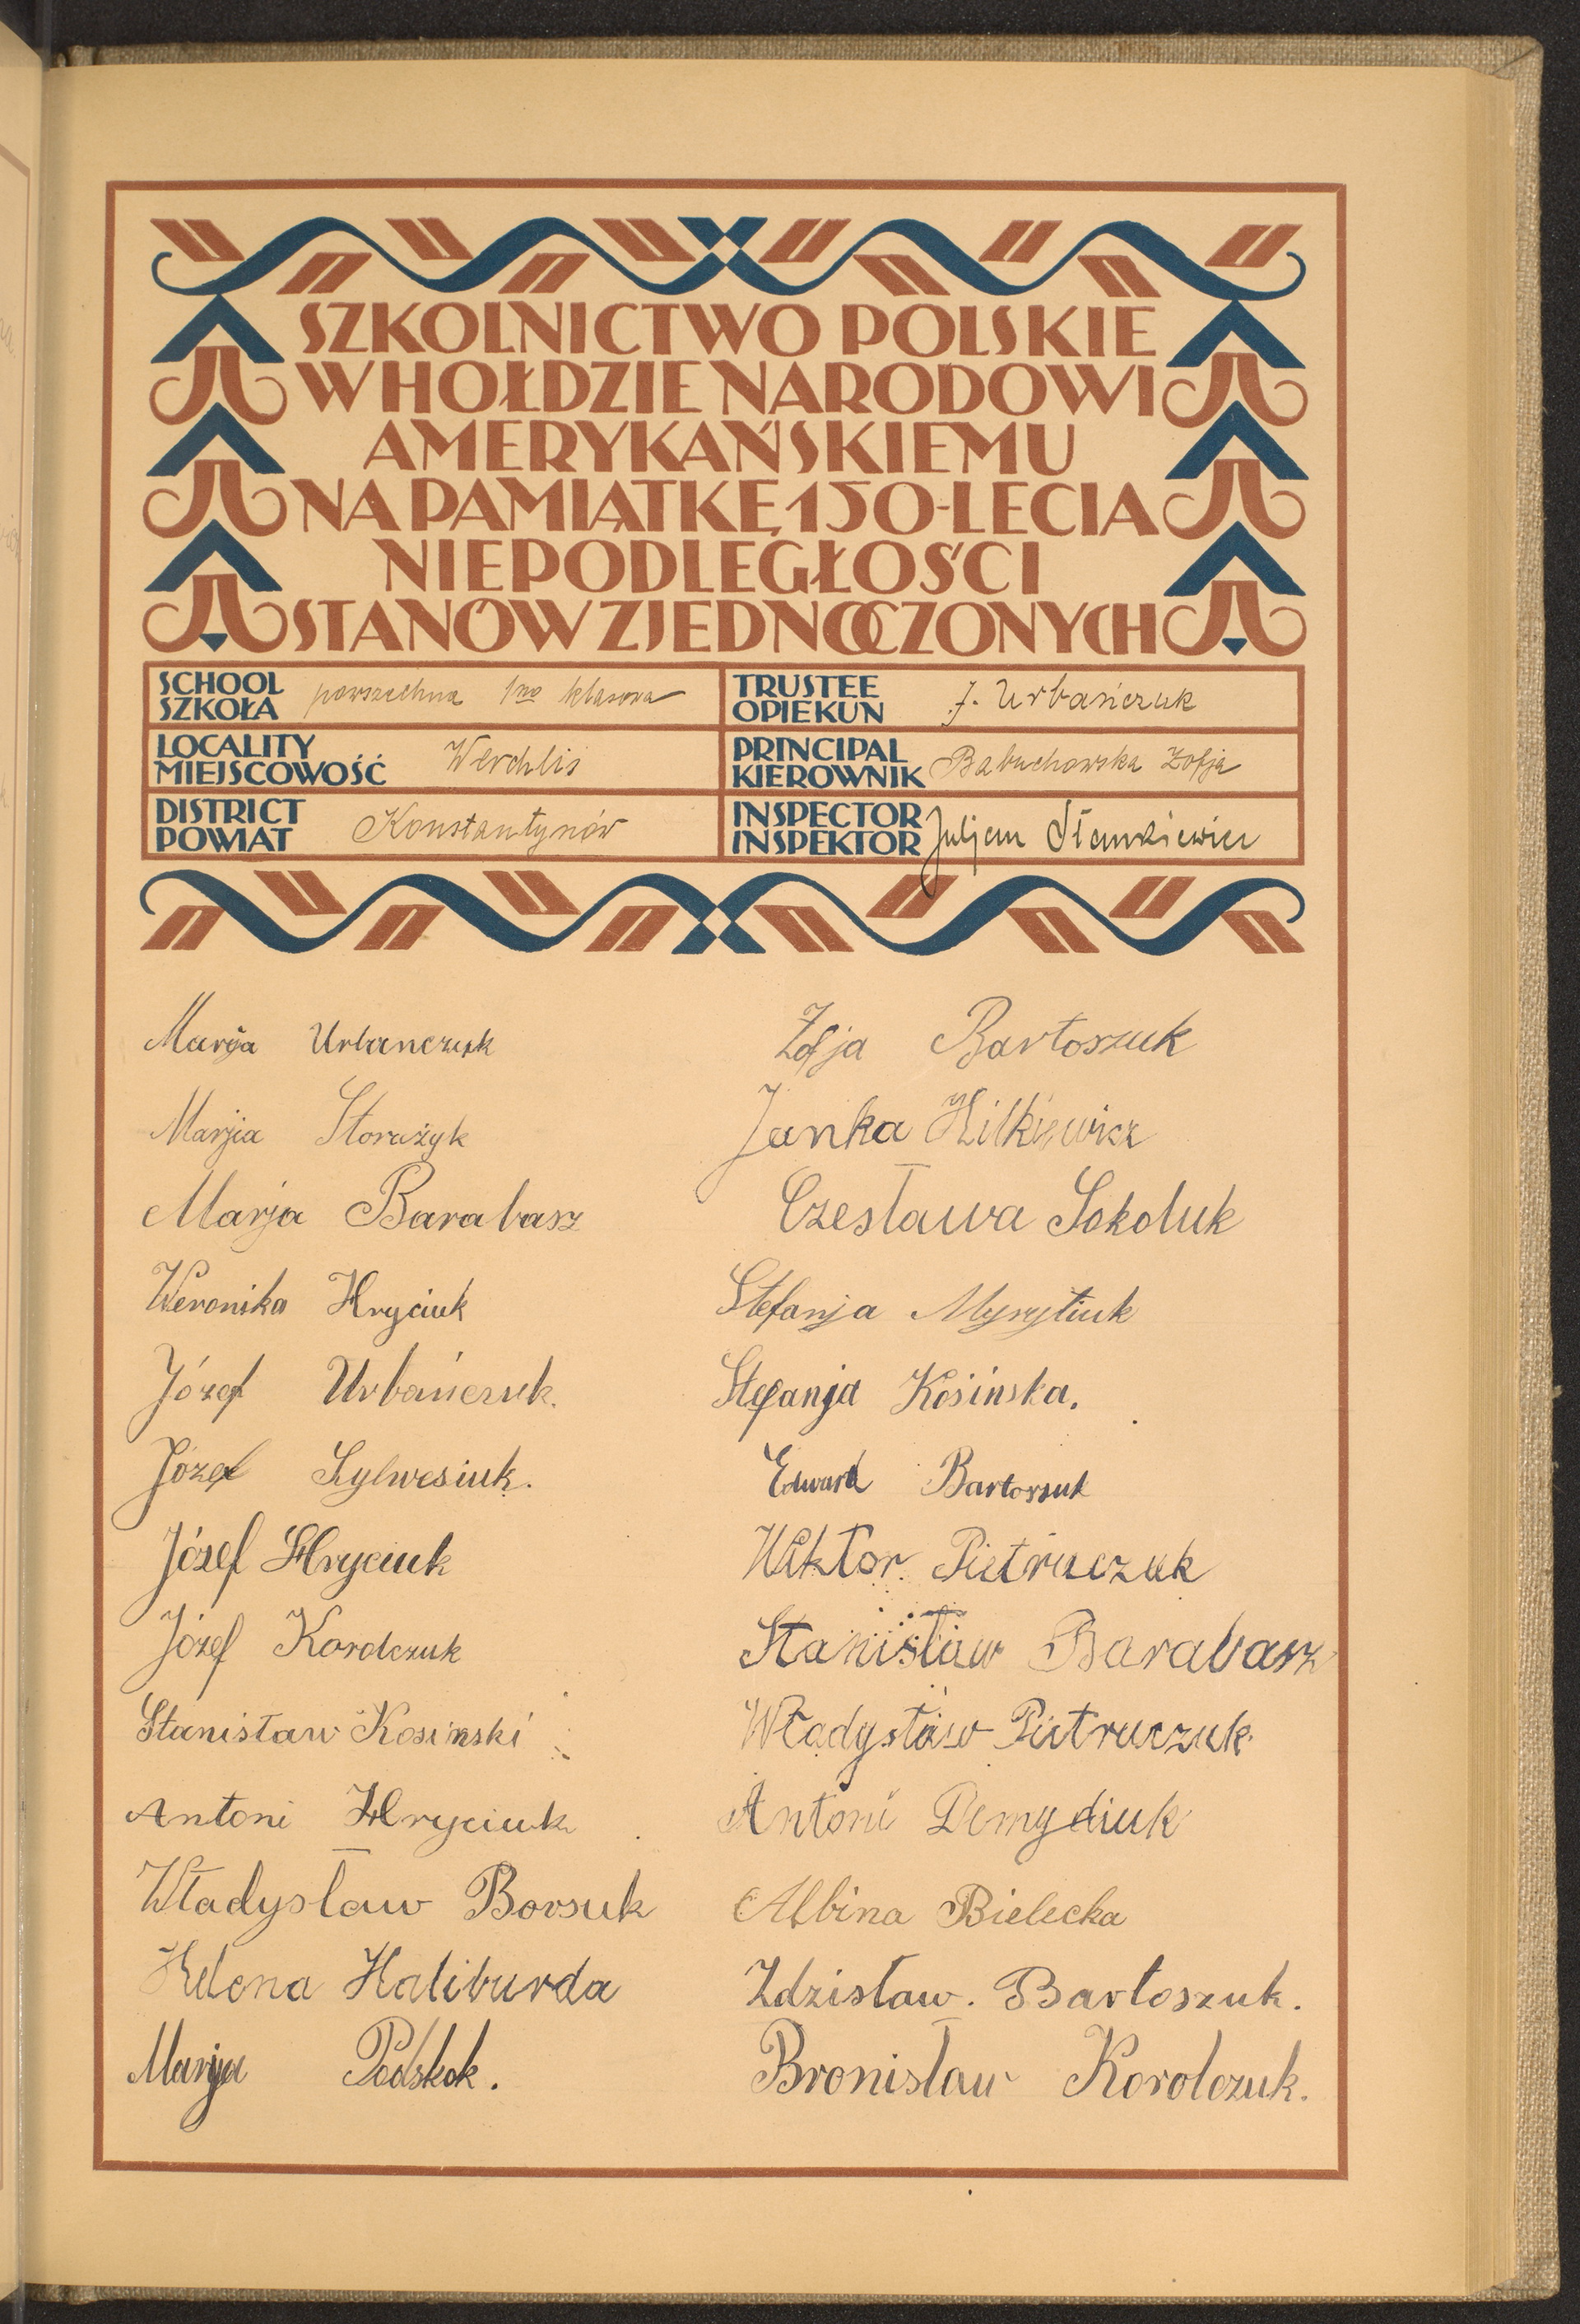 SZKOLNICTWO POLSKIE
W HOŁDZIE NARODOWI
AMERYKAŃSKIEMU
NA PAMIĄTKĘ 150-LECIA
NIEPODLEGŁOŚCI
STANÓW ZJEDNOCZONYCH
SCHOOL
SZKOŁA powszechna 1no klasowa
TRUSTEE
OPIEKUN J. Urbańczuk
LOCALITY
MIEJSCOWOŚĆ Werchlis
PRINCIPAL
KIEROWNIK Babuchowska Zofja
DISTRICT
POWIAT Konstantynów
INSPECTOR
INSPEKTOR Juljan Stankiewicz
Marja Urbanczuk
Marjia Storażyk
Marja Barabasz
Weronika Hryciuk
Józef Urbańczuk.
Józef Sylwesiuk.
Józef Hryciuk
Józef Korolczuk
Stanisław Kosinski
Antoni Hryciuk
Władysław Borsuk
Helena Haliburda
Marija Podskok.
Zofja Bartoszuk
Janka Hilkiewicz
Czesława Sokoluk
Stefanja Myrytiuk
Stefanja Kosinska.
Edward Bartoszuk
Wiktor Pietruczuk
Stanisław Barabasz
Władysław Pietruczuk
Antoni Demydiuk
Albina Bielecka
Zdzisław. Bartoszuk.
Bronisław Korolczuk.